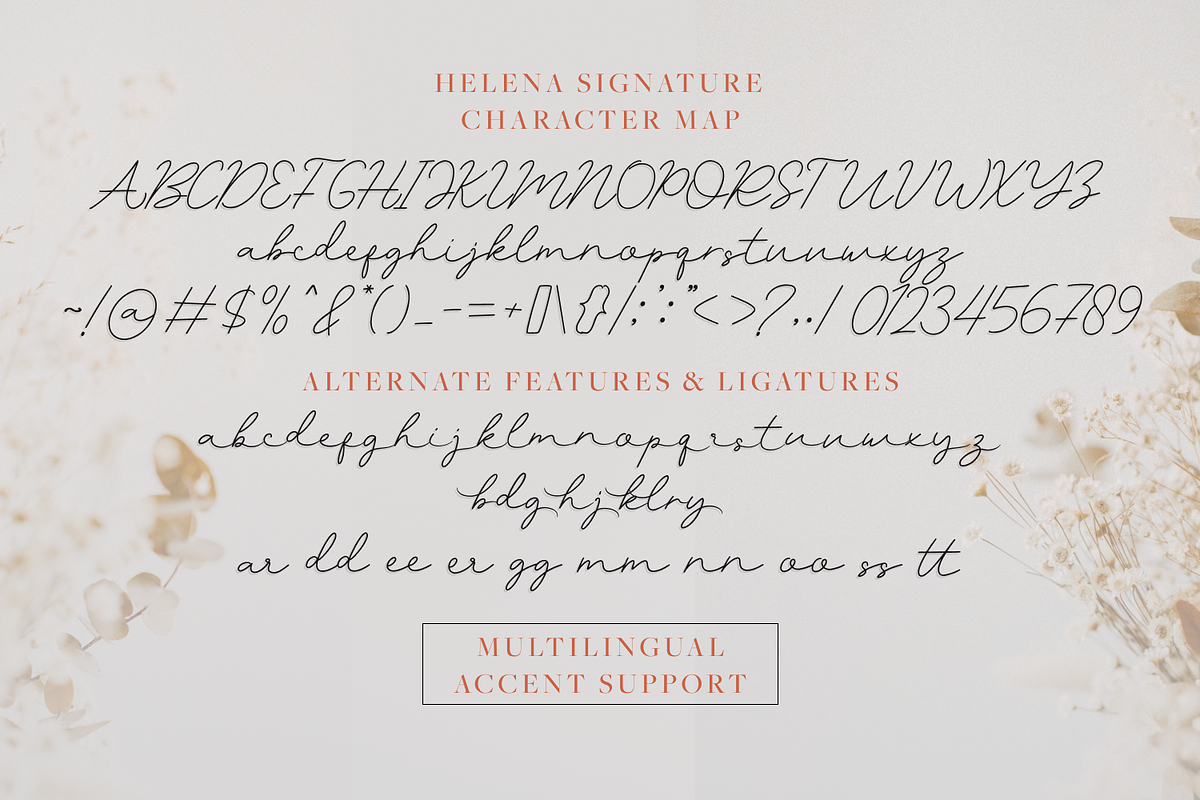 HELENA SIGNATURE
CHARACTER MAP
ABCDEFGHIJKLMNOPQRSTUVWXYZ
abcdefghijklmnopqrstuvwxyz
~!@#$%^&*()_-=+[]\{}|;':"<>?,./0123456789
ALTERNATE FEATURES & LIGATURES
abcdefghijklmnopqrstuvwxyz
bdghjklry
ar dd ee er gg mm nn oo ss tt
MULTILINGUAL
ACCENT SUPPORT